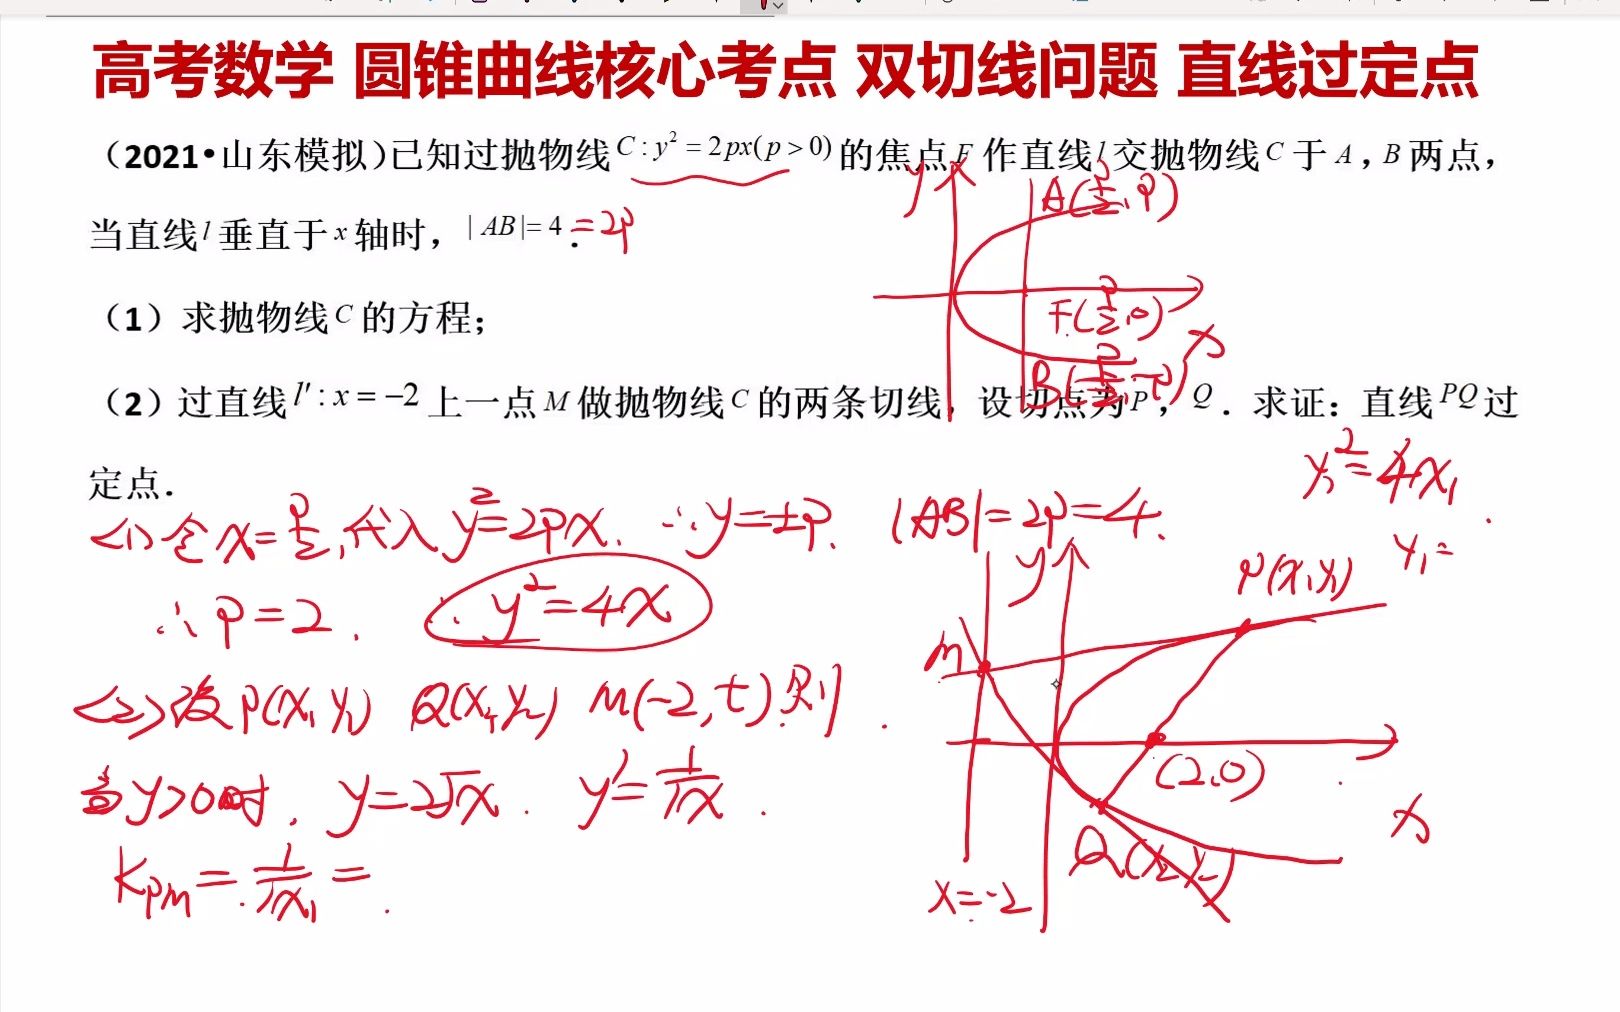 高考数学 圆锥曲线核心考点 双切线问题 直线过定点
（2021•山东模拟)已知过抛物线 C : y² = 2px(p > 0) 的焦点 F 作直线 l 交抛物线 C 于 A , B 两点，
当直线 l 垂直于 x 轴时， | AB |= 4 . = 2p
（1）求抛物线 C 的方程；
（2）过直线 l′ : x = −2 上一点 M 做抛物线 C 的两条切线，设切点为 P , Q . 求证：直线 PQ 过
定点.
y
A(p/2, p)
F(p/2, 0)
x
B(p/2, -p)
y₁² = 4x₁
y₁ =
<1> 令 x = p/2, 代入 y² = 2px. ∴ y = ±p. |AB| = 2p = 4.
∴ p = 2. ∴ y² = 4x
<2> 设 P(x₁ y₁) Q(x₂ y₂) M(-2, t) 则
当 y>0时, y = 2√x. y′ = 1/√x.
K_PM = 1/√x₁ =
y
P(x₁ y₁)
M
(2,0)
x
Q(x₂ y₂)
x = -2